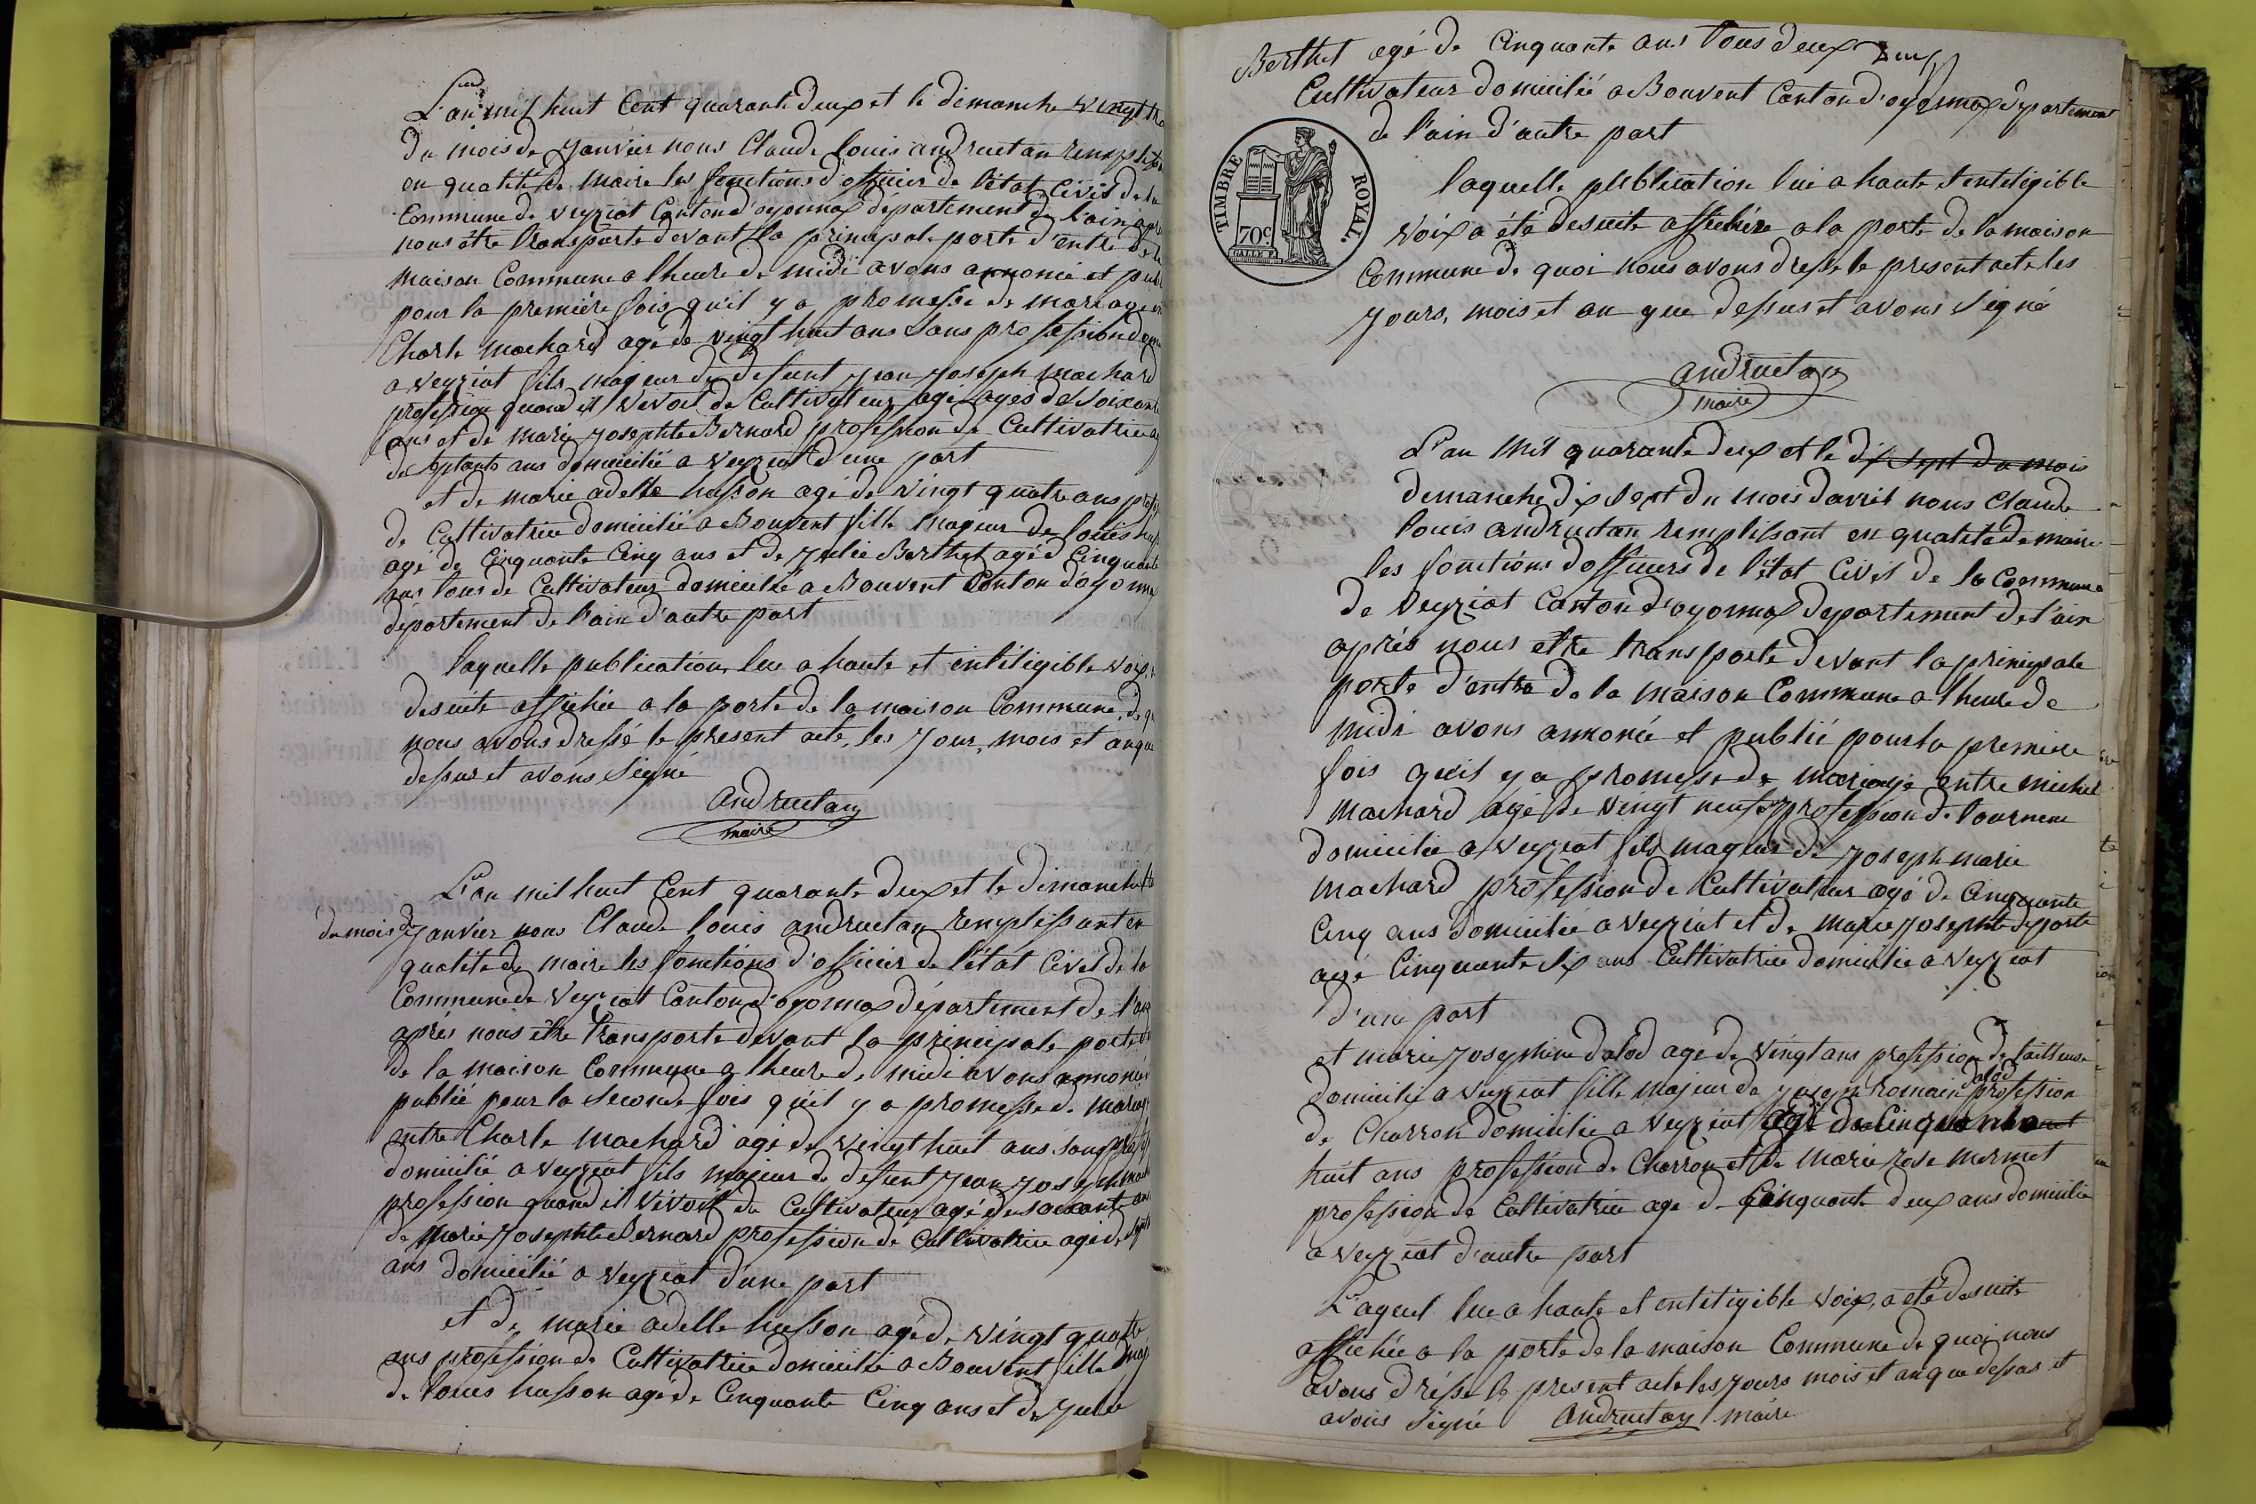 L'an mil huit Cent quarante deux et le dimanche vingt
du mois de Janvier nous Claude louis andruetan
en qualité de maire les fonctions d'officier de l'état Civil de la
Commune de veyziat Canton d'oyonnax departement de l'ain
nous être transporte devant la principale porte d'entré de la
maison Commune a lheure de midi avons annoncé et
pour la première fois qu'il y a promesse de mariage
Charle machard agé de vingt huit ans sans profession
a veyziat fils mageur de defunt Jean Joseph machard
profession quand il vivoit de Cultivateur agé agés de soixante
ans et de marie Josephte Bernard profession de Cultivatrice
de septante ans domicilié a veyziat d'une part
et de marie adelle husson agé de vingt quatre ans
de Cultivatrice domicilié a Bouvent fille mageur de louis
agé de Cinquante Cinq ans et de Julie Berthet agé d Cinquante
ans tous de Cultivateur domicilié a Bouvent Canton d'oyonnax
département de l'ain d'autre part
laquelle publication lue a haute et inteligible voix
desuite affichée a la porte de la maison Commune, de
nous avons dressé le present acte, les Jour, mois et an que
dessus et avons signé
andruetan
maire
L'an mil huit Cent quarante deux et le dimanche
du mois de Janvier nous Claude louis andruetan remplissant en
qualité de maire les fonctions d'officier de l'état Civil de la
Commune de Veyziat Canton d'oyonnax département de l'ain
après nous être transporte devant la principale porte
de la maison Commune a lheure de midi avons annoncé
publié pour la seconde fois qu'il y a promesse de
entre Charle machard agé de vingt huit ans sans
domicilié a veyziat fils majeur de defunt Jean Joseph
profession quand il vivoit de Cultivateur agé de soixante ans
de Marie Josephte Bernard profession de Cultivatrice agé de
ans domicilié a veyziat d'une part
et de marie adelle husson agé de vingt quatre
ans profession de Cultivatrice domicilié a Bouvent fille
de louis husson agé de Cinquante Cinq ans et de Julie
Berthet agé de Cinquante ans tous deux
Cultivateur domicilié a Bouvent Canton d'oyonnax departement
de l'ain d'autre part
TIMBRE ROYAL.
70c
laquelle publication lue a haute et enteligible
voix a été desuite affichée a la porte de la maison
Commune de quoi nous avons dressé le present acte les
Jours, mois et an que dessus et avons signé
andruetan
maire
L'an mil quarante deux et le dix sept du mois
demanche dix sept du mois d'avril nous Claude
louis andruetan remplissant en qualité de maire
les fonctions d'officiers de l'état Civil de la Commune
de Veyziat Canton d'oyonnax departement de l'ain
après nous etre transporte devant la principale
porte d'entré de la maison Commune a lheure de
midi avons annoncé et publié pour la premiere
fois qu'il y a promesse de mariage entre michel
machard agé de vingt neuf profession de tourneur
domicilié a Veyziat fils mageur de Joseph marie
machard profession de Cultivateur agé de Cinquante
Cinq ans domicilié a veyziat et de marie Josephte deporte
agé Cinquante six ans Cultivatrice domicilié a veyziat
d'une part
et marie Josephine dalod age de vingt ans profession de tailleuse
domicilié a veyziat fille majeur de Joseph Romain dalod profession
de Charron domicilié a veyziat agé de Cinquante
huit ans profession de Charron et de marie rose mermet
profession de Cultivatrice age de Cinquante deux ans domicilié
a veyziat d'autre part
Laquel lue a haute et enteligible voix, a été desuite
affichée a la porte de la maison Commune de quoi nous
avons dressé le present acte les Jours mois et an que dessus et
avons signé andruetan maire